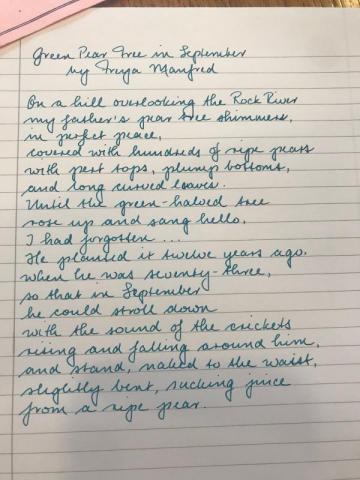 Green Pear Tree in September
by Freya Manfred
On a hill overlooking the Rock River
my father's pear tree shimmers,
in perfect peace,
covered with hundreds of ripe pears
with pert tops, plump bottoms,
and long curved leaves.
Until the green-haloed tree
rose up and sang hello,
I had forgotten ...
He planted it twelve years ago,
when he was seventy-three,
so that in September
he could stroll down
with the sound of the crickets
rising and falling around him,
and stand, naked to the waist,
slightly bent, sucking juice
from a ripe pear.